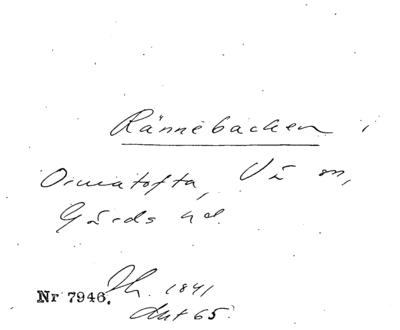 Rännebacken i
Ormatofta, Vä sn,
Gärds hd.
Nr 7946. Jh. 1841
Akt 65.